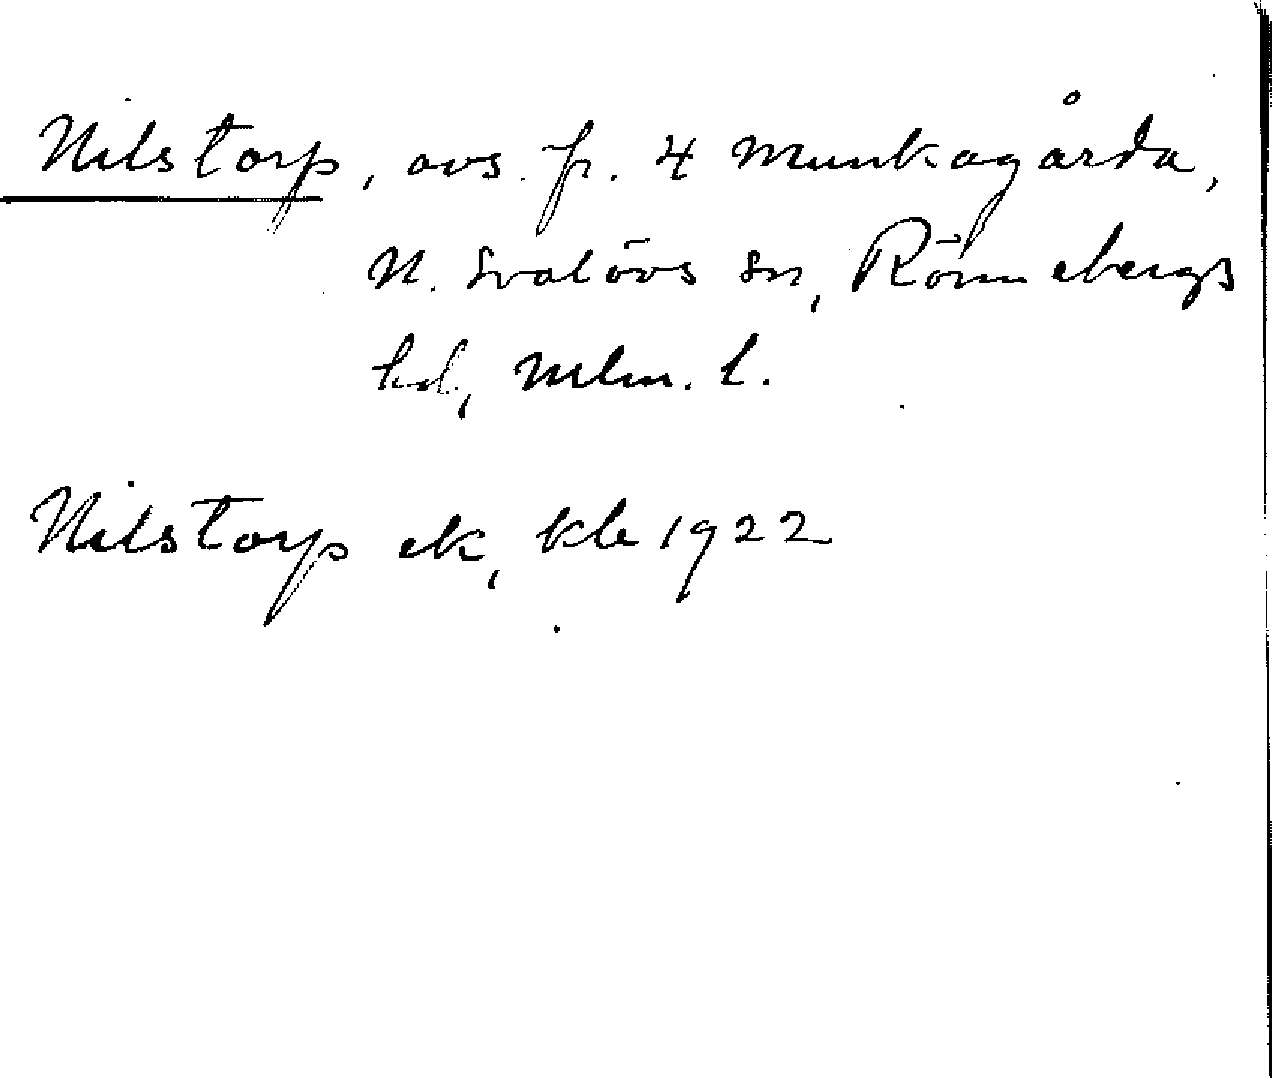 Nilstorp, avs. fr. 4 Munkagårda,
N. Svalövs sn, Rönnebergs
hd, Mlm. l.
Nilstorp ek, kb 1922